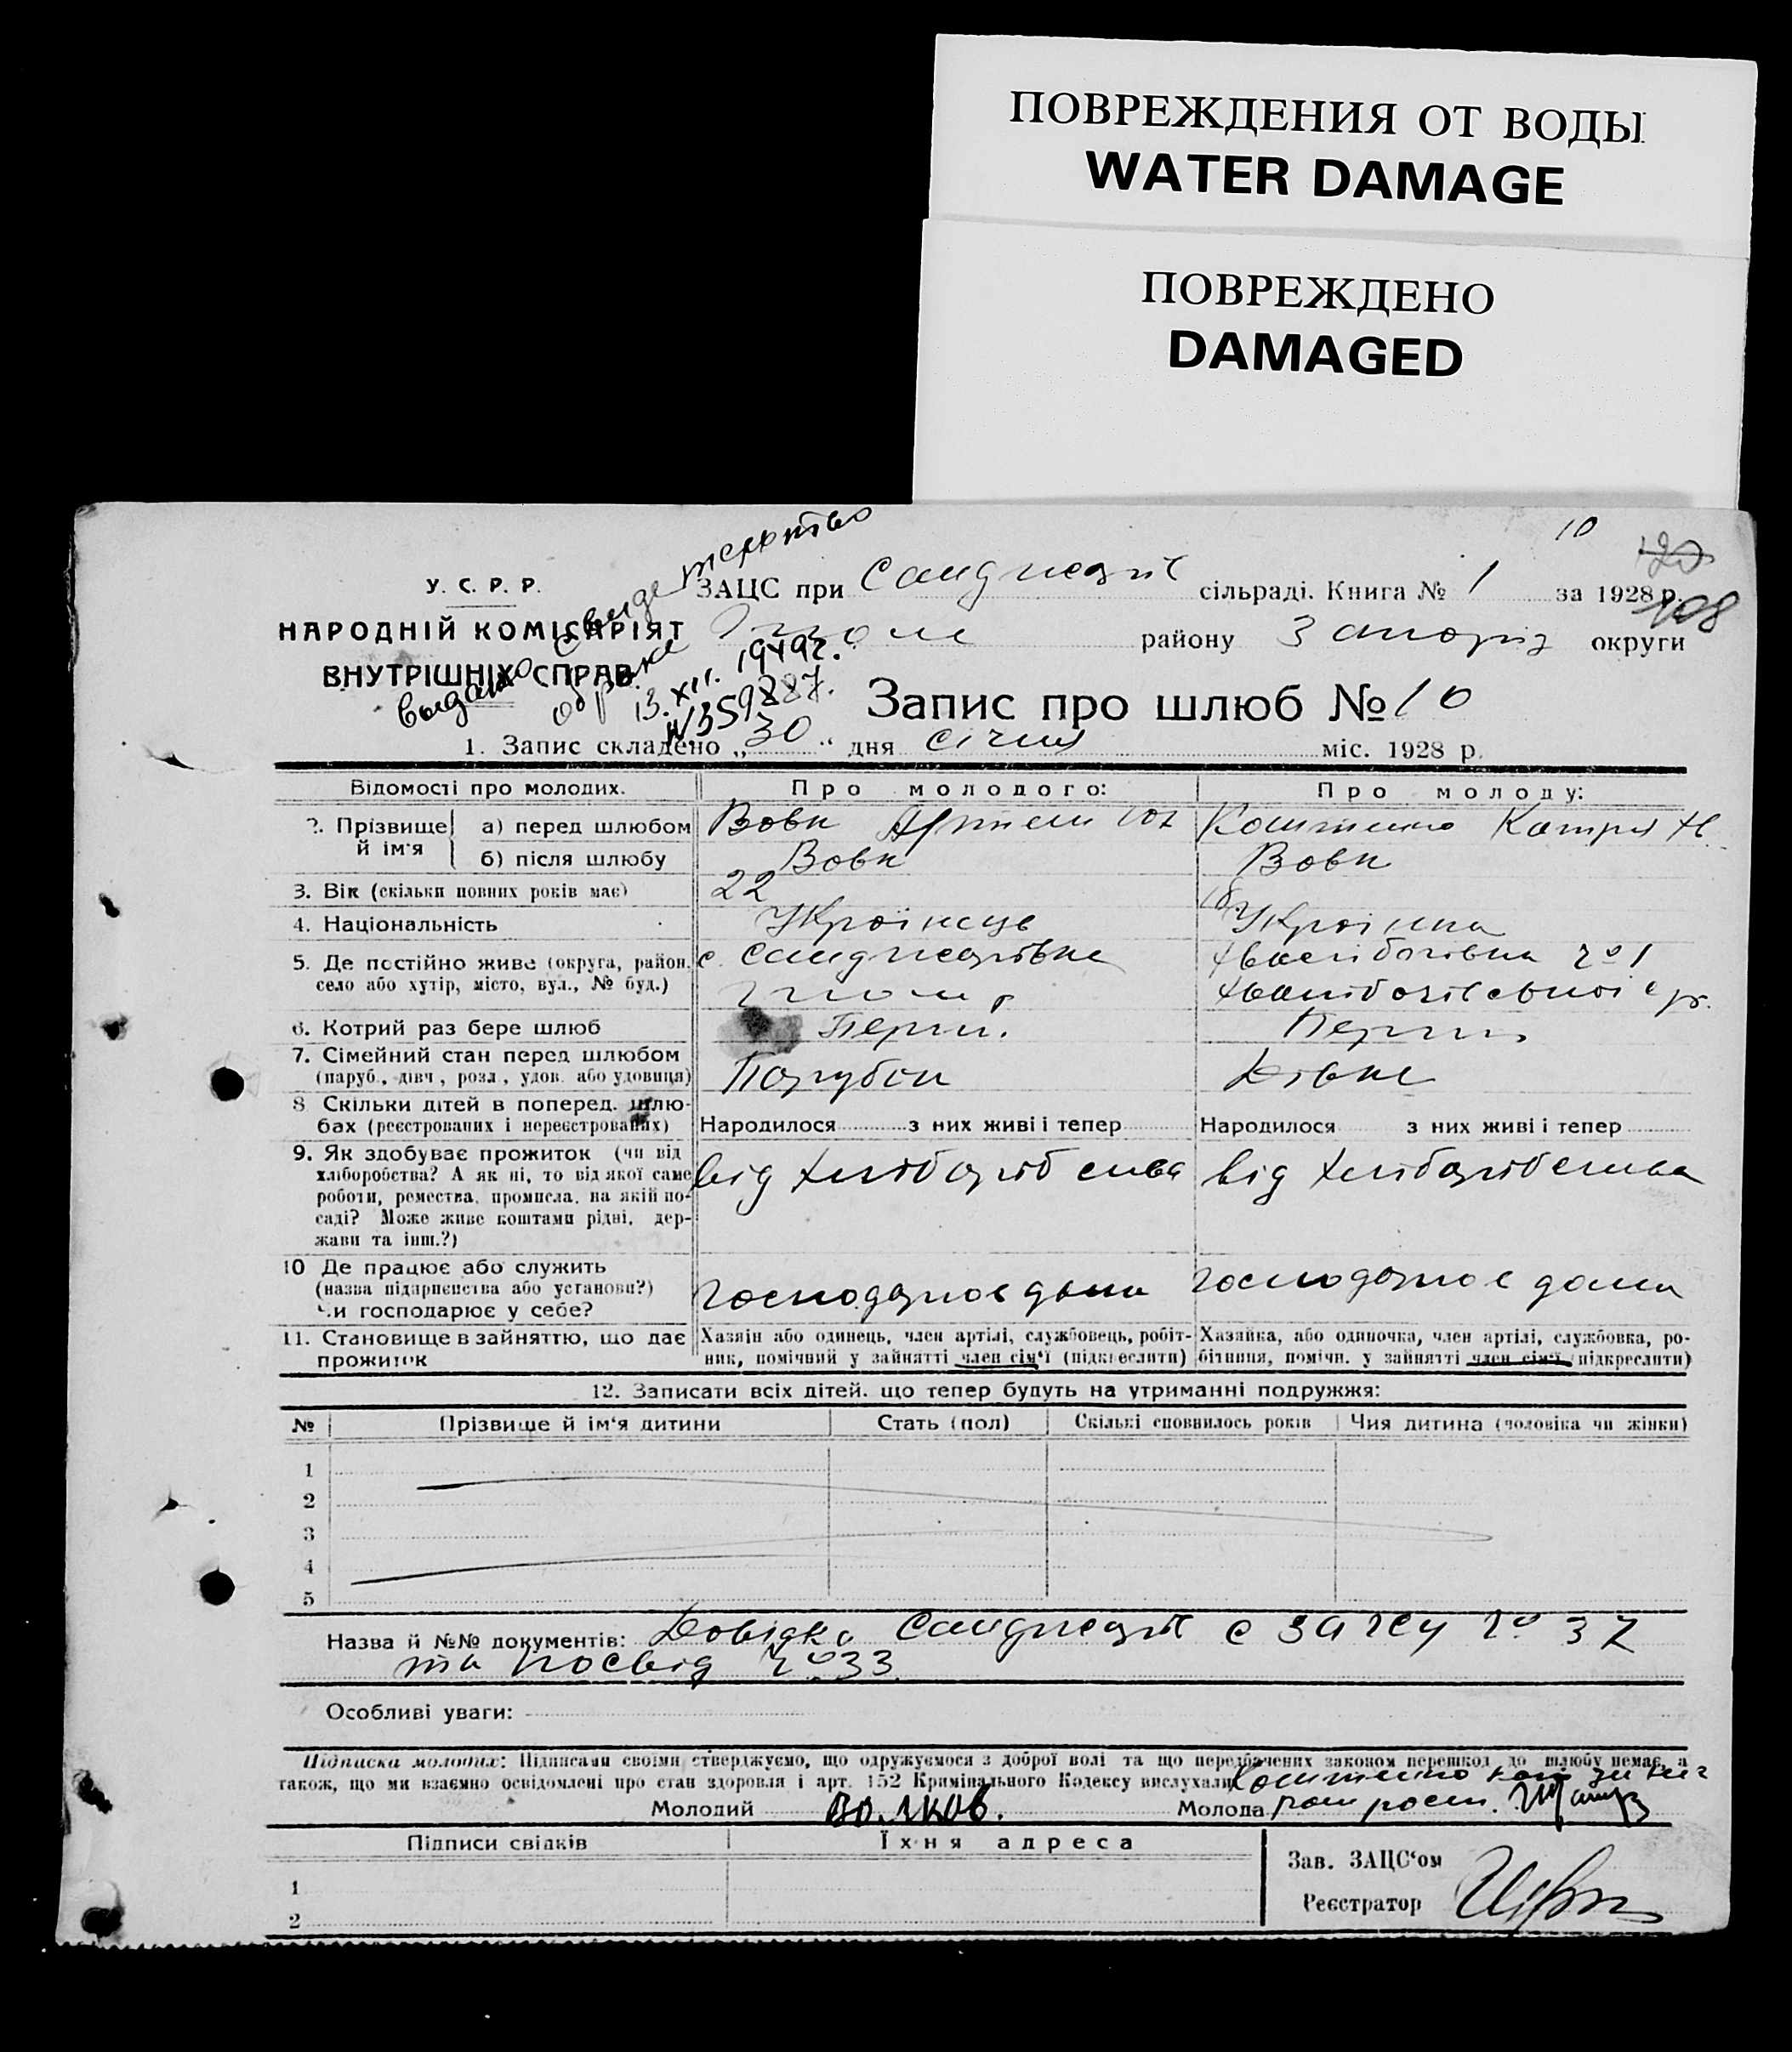 ПОВРЕЖДЕНИЯ ОТ ВОДЫ
WATER DAMAGE
ПОВРЕЖДЕНО
DAMAGED
10
120
108
У. С. Р. Р.
НАРОДНІЙ КОМІСАРІЯТ
ВНУТРІШНІХ СПРАВ
выдано свидетельство
о браке
13.XII. 1949г.
ЗАЦС при сільраді. Книга № 1 за 1928 р.
району Запоріз округи
Запис про шлюб № 10
1. Запис складено „30“ дня січня міс. 1928 р.
Відомості про молодих. Про молодого: Про молоду:
2. Прізвище й ім'я а) перед шлюбом Вовк Артем Катря
б) після шлюбу Вовк Вовк
3. Вік (скільки повних років має) 22
4. Національність Українець Українка
5. Де постійно живе (округа, район, село або хутір, місто, вул., № буд.) с.
6. Котрий раз бере шлюб Перш. Перш
7. Сімейний стан перед шлюбом (паруб., дівч., розл., удов. або удовиця) Парубок Дівка
8. Скільки дітей в поперед. шлюбах (реєстрованих і нереєстрованих) Народилося з них живі і тепер Народилося з них живі і тепер
9. Як здобуває прожиток (чи від хліборобства? А як ні, то від якої саме роботи, ремества, промисла, на якій посаді? Може живе коштами рідні, держави та інш.?) від хліборобства від хліборобства
10 Де працює або служить (назва підприємства або установи?) Чи господарює у себе? господарює дома господарює дома
11. Становище в зайняттю, що дає прожиток
Хазяін або одинець, член артілі, службовець, робітник, помічний у зайнятті член сім'ї (підкреслити)
Хазяйка, або одиночка, член артілі, службовка, робітниця, помічн. у зайнятті член сім'ї (підкреслити)
12. Записати всіх дітей, що тепер будуть на утриманні подружжя:
№ Прізвище й ім'я дитини Стать (пол) Скількі сповнилось років Чия дитина (чоловіка чи жінки)
1
2
3
4
5
Назва й №№ документів: Довідка с ЗАГСу № 37
та посвід № 33
Особливі уваги:
Підписка молодих: Підписами своїми стверджуємо, що одружуємося з доброї волі та що передбачених законом перешкод до шлюбу немає, а
також, що ми взаємно освідомлені про стан здоровля і арт. 152 Кримінального Кодексу вислухали
Молодий Волков. Молода
Підписи свідків Їхня адреса
1
2
Зав. ЗАЦС'ом
Реєстратор